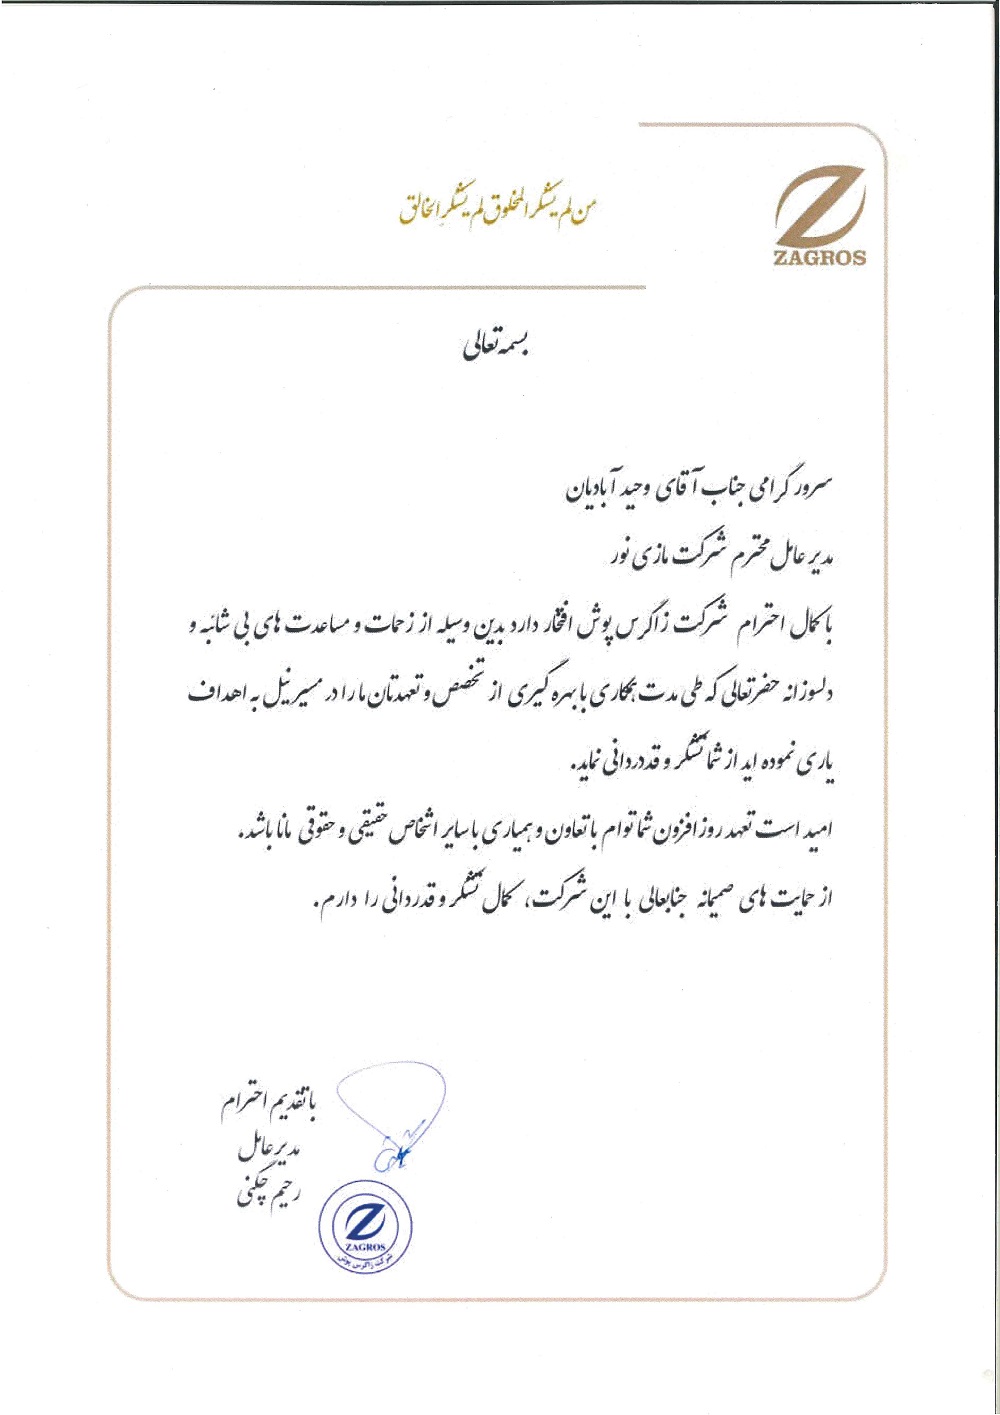 ZAGROS
من لم یشکر المخلوق لم یشکر الخالق
بسمه تعالی
سرور گرامی جناب آقای وحید آبادیان
مدیر عامل محترم شرکت مازی نور
با کمال احترام شرکت زاگرس پوش افتخار دارد بدین وسیله از زحمات و مساعدت های بی شائبه و
دلسوزانه حضرتعالی که طی مدت همکاری با بهره گیری از تخصص و تعهدتان ما را در مسیر نیل به اهداف
یاری نموده اید از شما تشکر و قدردانی نماید.
امید است تعهد روز افزون شما توام با تعاون و همیاری با سایر اشخاص حقیقی و حقوقی مانا باشد.
از حمایت های صمیمانه جنابعالی با این شرکت، کمال تشکر و قدردانی را دارم.
با تقدیم احترام
مدیر عامل
رحیم چگنی
ZAGROS
شرکت زاگرس پوش